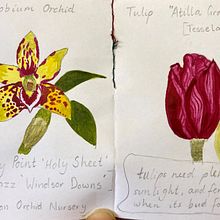 obium Orchid
y Point 'Holy Sheet'
ozz Windsor Downs'
on Orchid Nursery
Tulip "Atilla Gra
[Tessela
tulips need ple
sunlight, and fe
when its bud fo